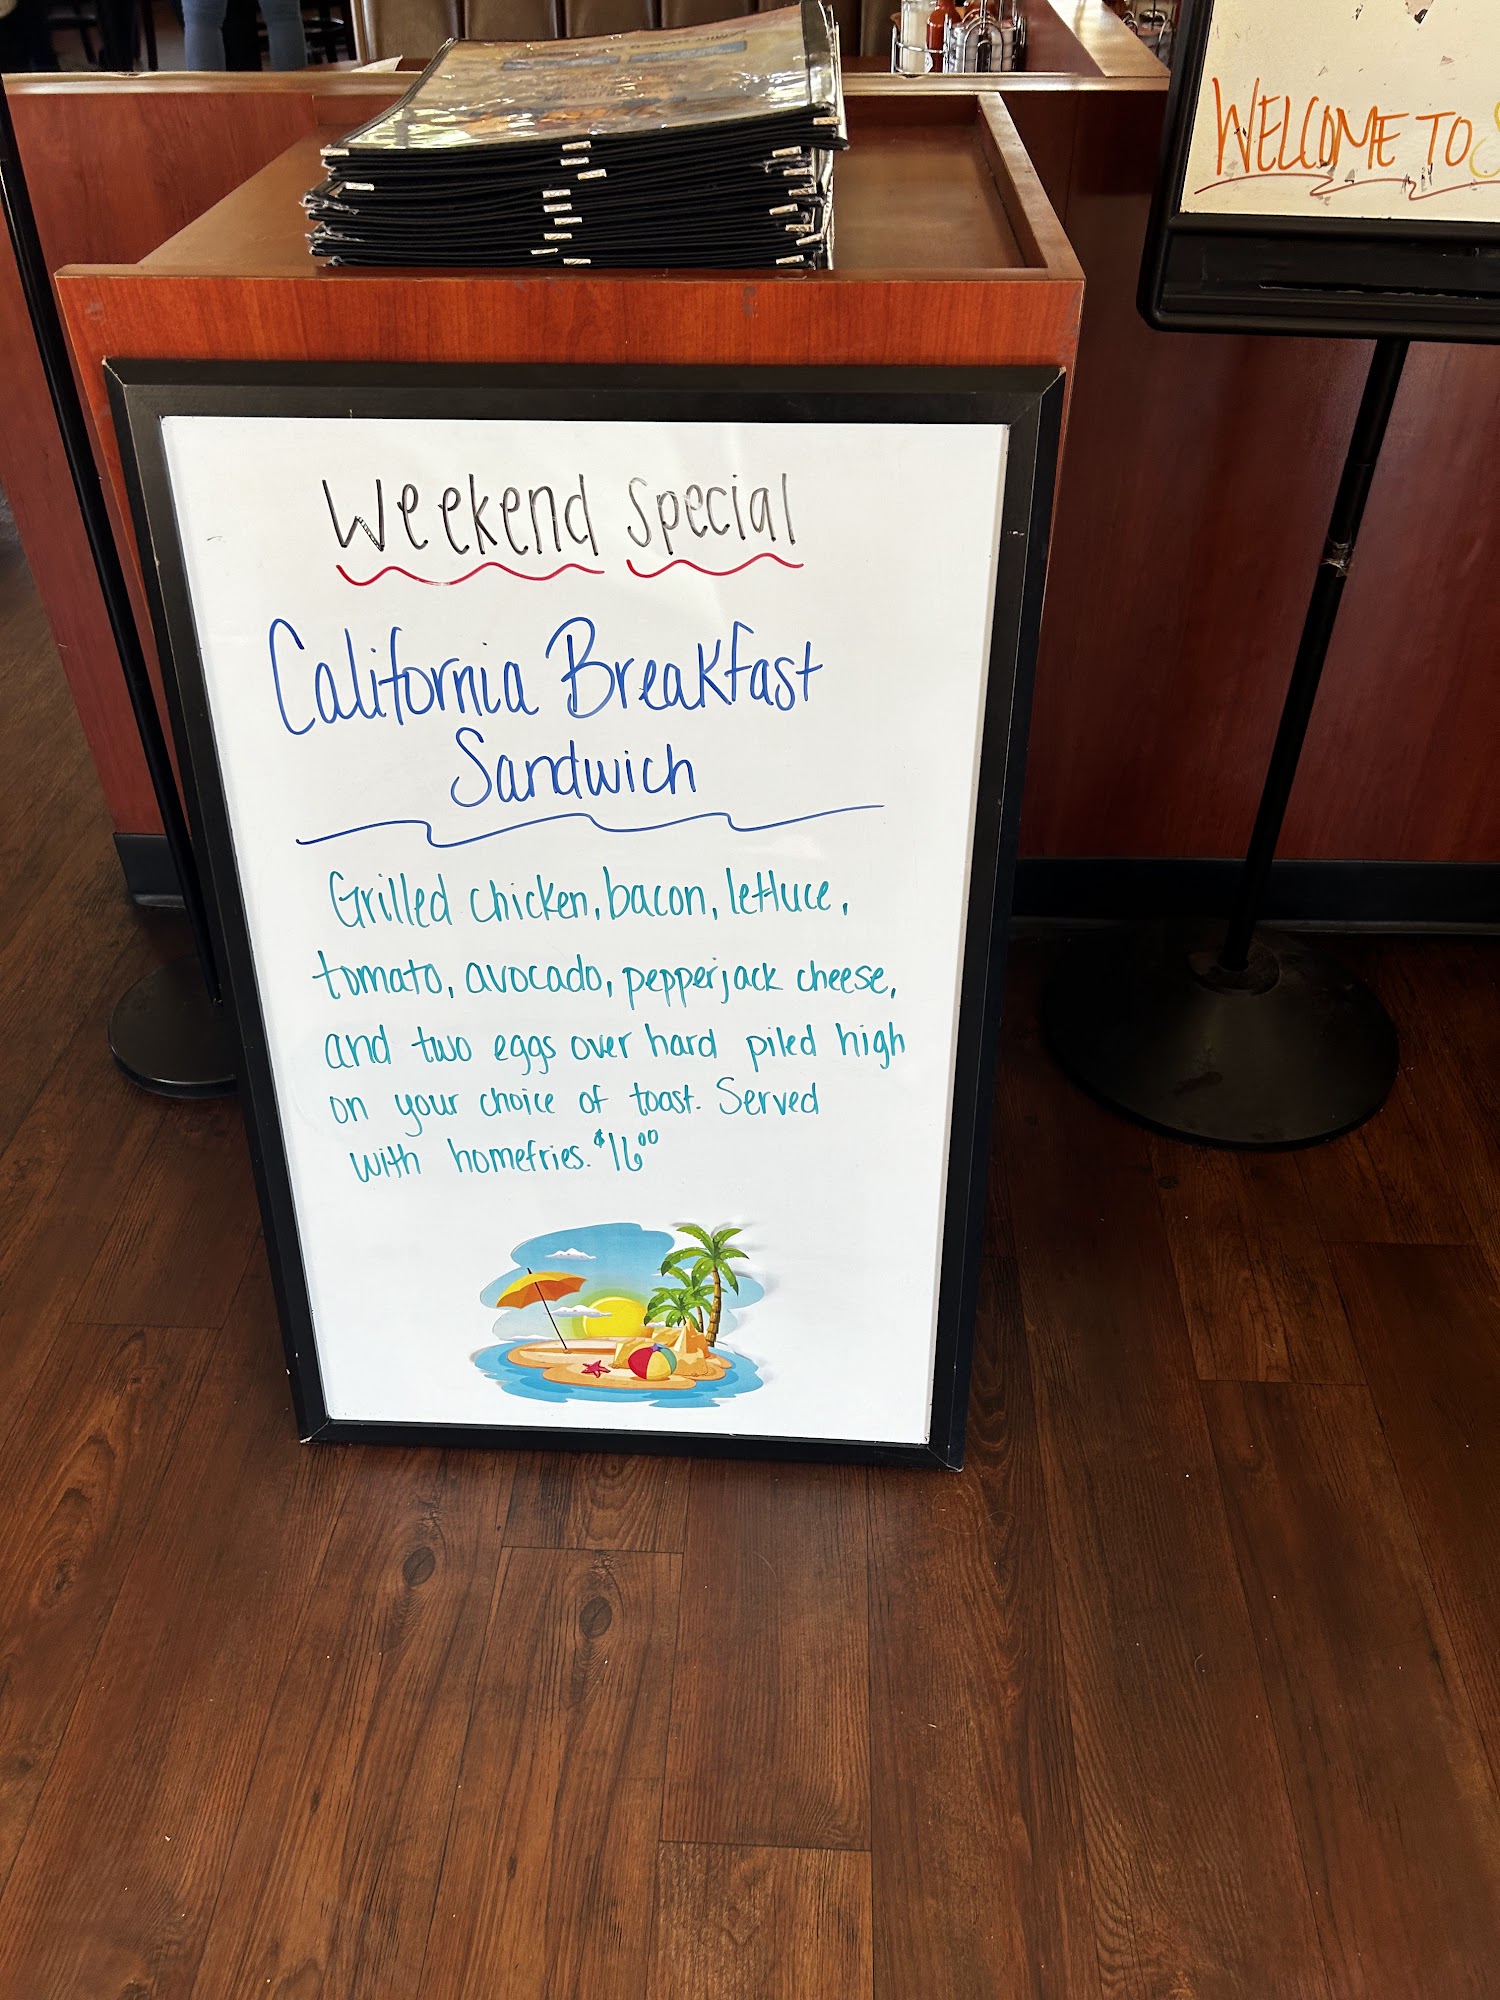 WELCOME TO
Weekend Special
California Breakfast
Sandwich
Grilled chicken, bacon, lettuce,
tomato, avocado, pepperjack cheese,
and two eggs over hard piled high
on your choice of toast. Served
with homefries. $16.00